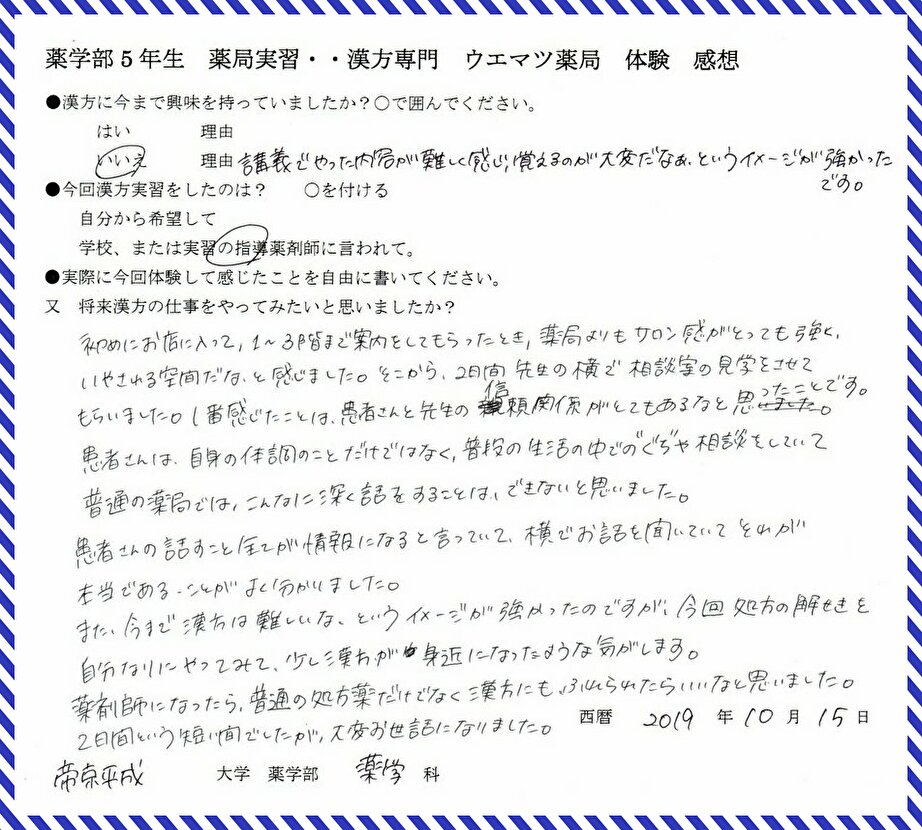 薬学部5年生　薬局実習・・漢方専門　ウエマツ薬局　体験　感想
●漢方に今まで興味を持っていましたか？○で囲んでください。
はい　理由
いいえ　理由　講義でやった内容が難しく感じ、覚えるのが大変だなぁ、というイメージが強かった
です。
●今回漢方実習をしたのは？　○を付ける
自分から希望して
学校、または実習の指導薬剤師に言われて。
●実際に今回体験して感じたことを自由に書いてください。
又　将来漢方の仕事をやってみたいと思いましたか？
初めにお店に入って、1～3階まで案内をしてもらったとき、薬局よりもサロン感がとっても強く、
いやされる空間だな、と感じました。そこから、2日間 先生の横で 相談室の見学をさせて
もらいました。1番感じたことは、患者さんと先生の信頼関係がとてもあるなと思ったことです。
患者さんは、自身の体調のことだけではなく、普段の生活の中でのぐちや相談をしていて
普通の薬局では、こんなに深く話をすることは、できないと思いました。
患者さんの話すこと全てが情報になると言っていて、横でお話を聞いていてそれが
本当であることがよく分かりました。
また、今まで漢方は難しいな、というイメージが強かったのですが、今回 処方の解せきを
自分なりにやってみて、少し漢方が身近になったような気がします。
薬剤師になったら、普通の処方薬だけでなく漢方にもふれられたらいいなと思いました。
2日間という短い間でしたが、大変お世話になりました。
西暦　2019　年　10　月　15　日
帝京平成　大学　薬学部　薬学　科